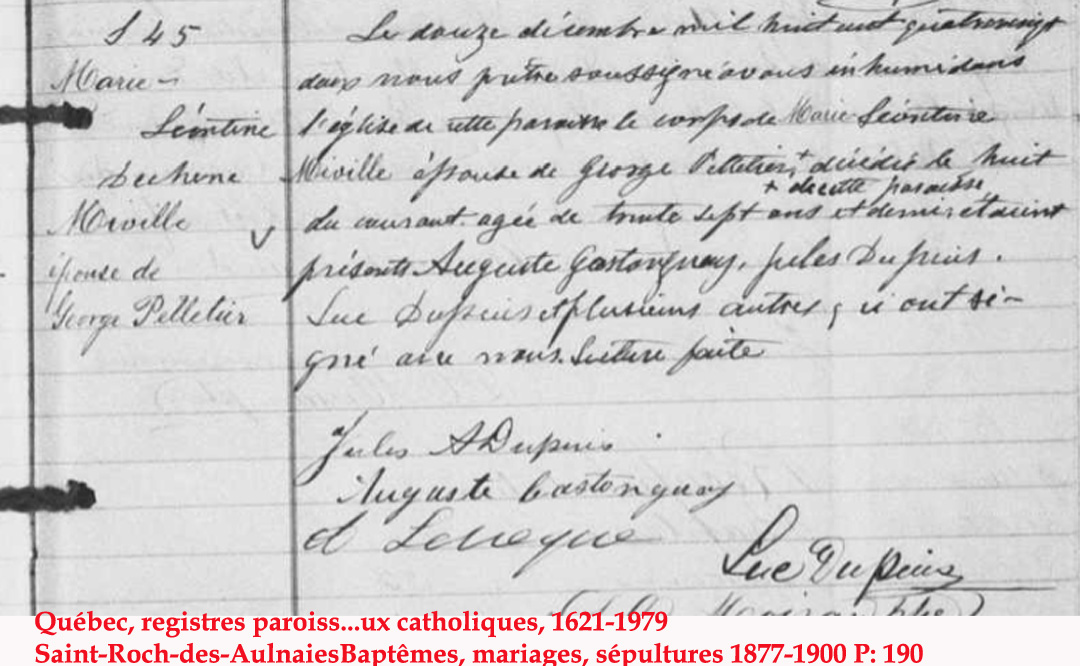 S 45
Marie-
Léontine
Dechene
Miville
épouse de
George Pelletier
Le douze décembre mil huit cent quatrevingt
deux nous prêtre soussigné avons inhumé dans
l'église de cette paroisse le corps de Marie Léontine
Miville épouse de George Pelletier,+ décédée le huit
+ de cette paroisse
du courant agée de trente sept ans et demi etaient
présents Auguste Gastonguay, Jules Dupuis.
Luc Dupuis et plusieurs autres, qui ont si-
gné avec nous. Lecture faite
Jules A Dupuis
Auguste Castonguay
Luc Dupuis
Québec, registres paroiss...ux catholiques, 1621-1979
Saint-Roch-des-AulnaiesBaptêmes, mariages, sépultures 1877-1900 P: 190